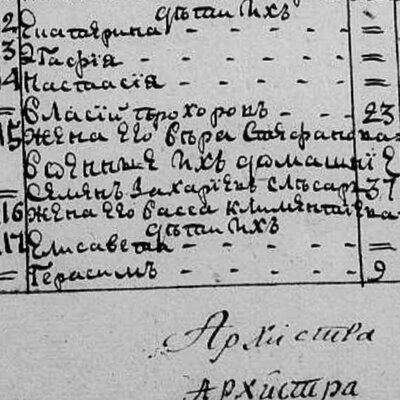 дѣти ихъ
2 Екатерина - - - - =
3 Агафія - - - - - =
4 Настасія - - - - =
= Власій Прохоровъ - - 23
15 Жена его Вѣра Стефанова =
Военные ихъ домашніе
= Семенъ Захаріевъ слѣсарь 37
16 Жена его Васса Климентіева
дѣти ихъ
17 Елисавета - - - - =
= Герасимъ - - - - 9
Архистра
Архистра